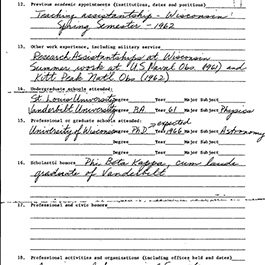 12. Previous academic appointments (institutions, dates and positions)
Teaching assistantship - Wisconsin
Spring Semester - 1962
13. Other work experience, including military service
Research Assistantships at Wisconsin
Summer work at U.S. Naval Obs (1961) and
Kitt Peak Natl Obs (1962)
14. Undergraduate schools attended:
St. Louis University Degree Year Major Subject
Vanderbilt University Degree B.A. Year 61 Major Subject Physics
15. Professional or graduate schools attended: expected
University of Wisconsin Degree PhD Year 1966 Major Subject Astronomy
Degree Year Major Subject
Degree Year Major Subject
16. Scholastic honors Phi Beta Kappa, cum laude
graduate of Vanderbilt
17. Professional and civic honors
18. Professional activities and organizations (including offices held and dates)